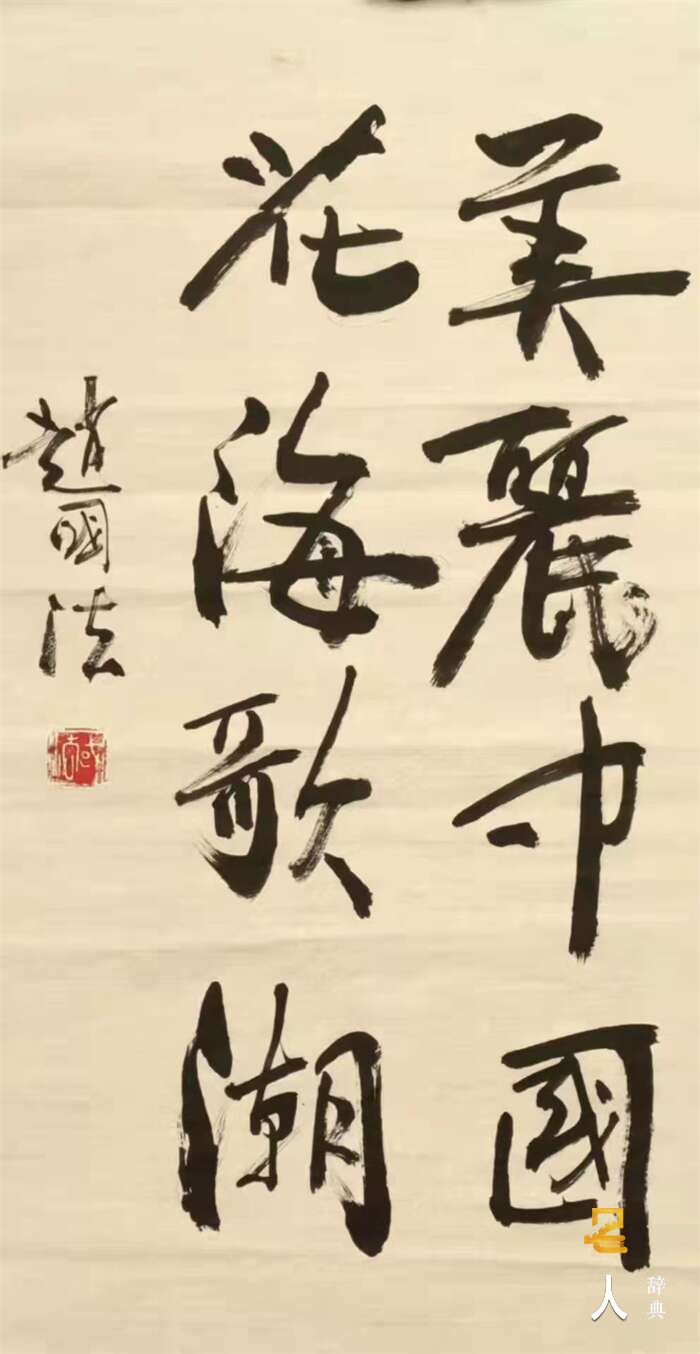 美麗中國
花海歌潮
趙國法
名人
辞典